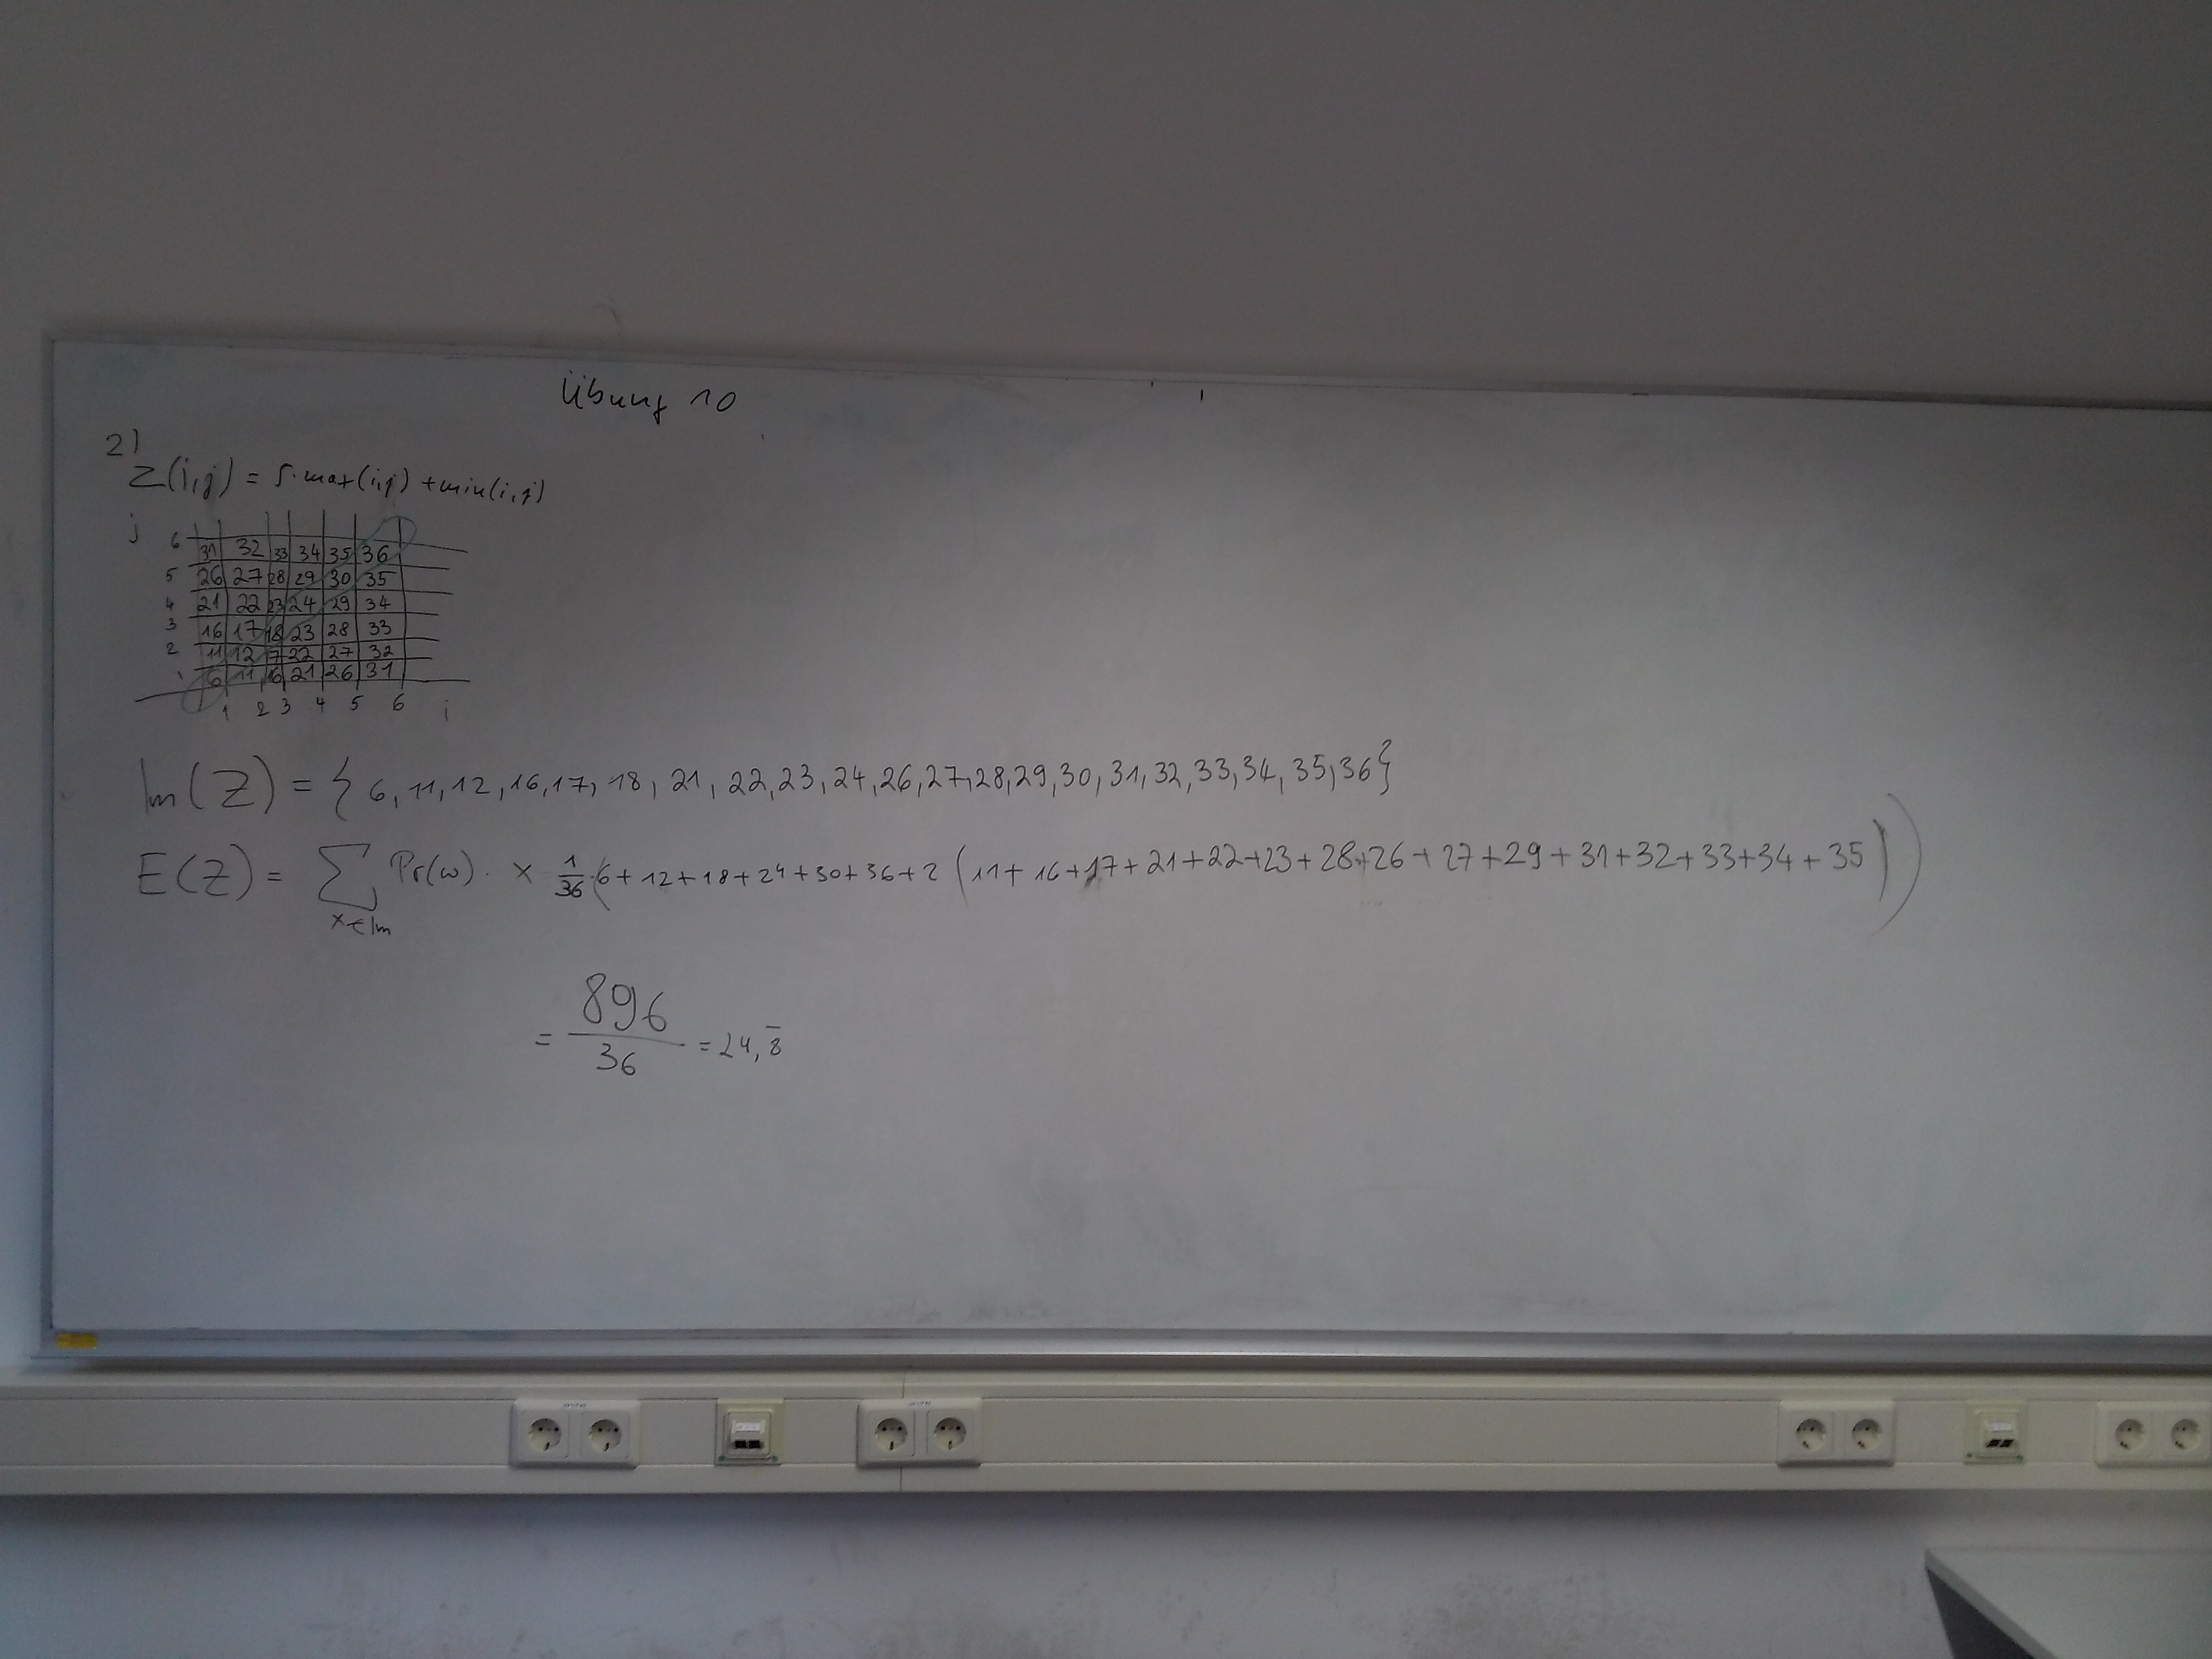 Übung 10
2)
Z(i,j) = 5·max(i,j) + min(i,j)
j
6 31 32 33 34 35 36
5 26 27 28 29 30 35
4 21 22 23 24 29 34
3 16 17 18 23 28 33
2 11 12 17 22 27 32
1 6 11 16 21 26 31
1 2 3 4 5 6 i
Im(Z) = { 6, 11, 12, 16, 17, 18, 21, 22, 23, 24, 26, 27, 28, 29, 30, 31, 32, 33, 34, 35, 36}
E(Z) = ∑ Pr(ω) · x 1/36 ·(6 + 12 + 18 + 24 + 30 + 36 + 2 (11 + 16 + 17 + 21 + 22 + 23 + 28 + 26 + 27 + 29 + 31 + 32 + 33 + 34 + 35))
x∈Im
= 896/36 = 24,8̅